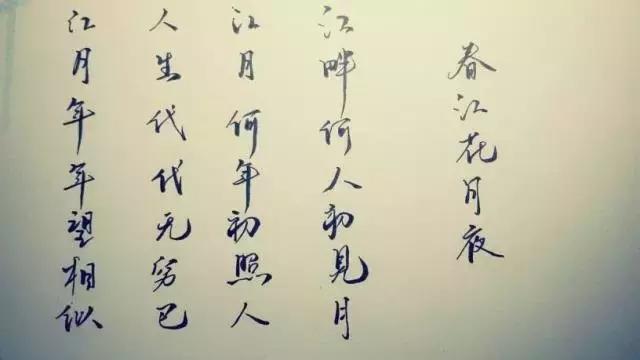 春江花月夜
江畔何人初見月
江月何年初照人
人生代代无穷已
江月年年望相似